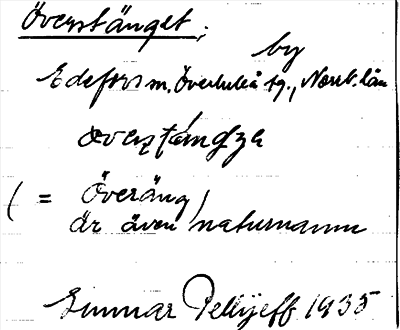 Överstänget,
by
Edefors sn. Överluleå tg., Norrb. län
(= Överäng)
är även naturnamn
Gunnar Pellijeff 1935